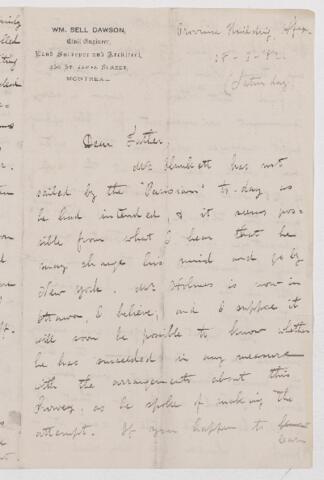 WM. BELL DAWSON,
Civil Engineer,
Land Surveyor and Architect,
MONTREAL
Province Building, Hfx.
(Saturday)
Dear Father,
Mr has not
sailed by the "Parisian" to-day as
he had intended, & it seems pos-
sible from what I hear that he
may change his mind and go by
New York. Mr Holmes is now in
Ottawa, I believe; and I suppose it
will soon be possible to know whether
he has succeeded in any measure
with the arrangements about this
Survey, as he spoke of making the
attempt. If you happen to
learn